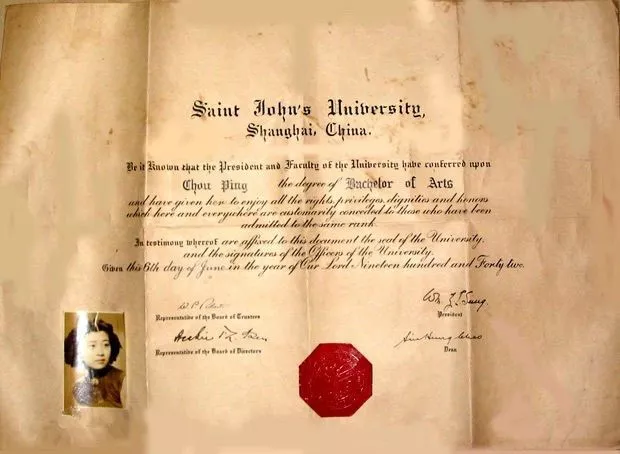 Saint John's University,
Shanghai, China.
Be it Known that the President and Faculty of the University have conferred upon
Chou Ping the degree of Bachelor of Arts
and have given her to enjoy all the rights, privileges, dignities and honors
which here and everywhere are customarily conceded to those who have been
admitted to the same rank.
In testimony whereof are affixed to this document the seal of the University,
and the signatures of the Officers of the University.
Given this 6th day of June in the year of Our Lord Nineteen hundred and Forty two.
Representative of the Board of Trustees
President
Representative of the Board of Directors
Dean